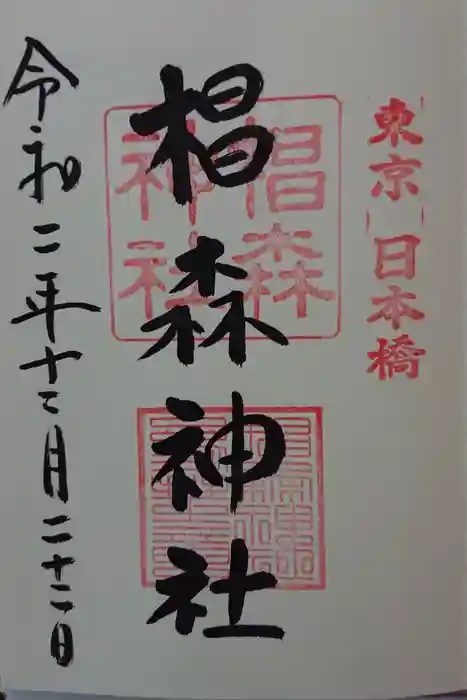 東京 日本橋
椙森神社
椙森
神社
令和二年十二月二十二日